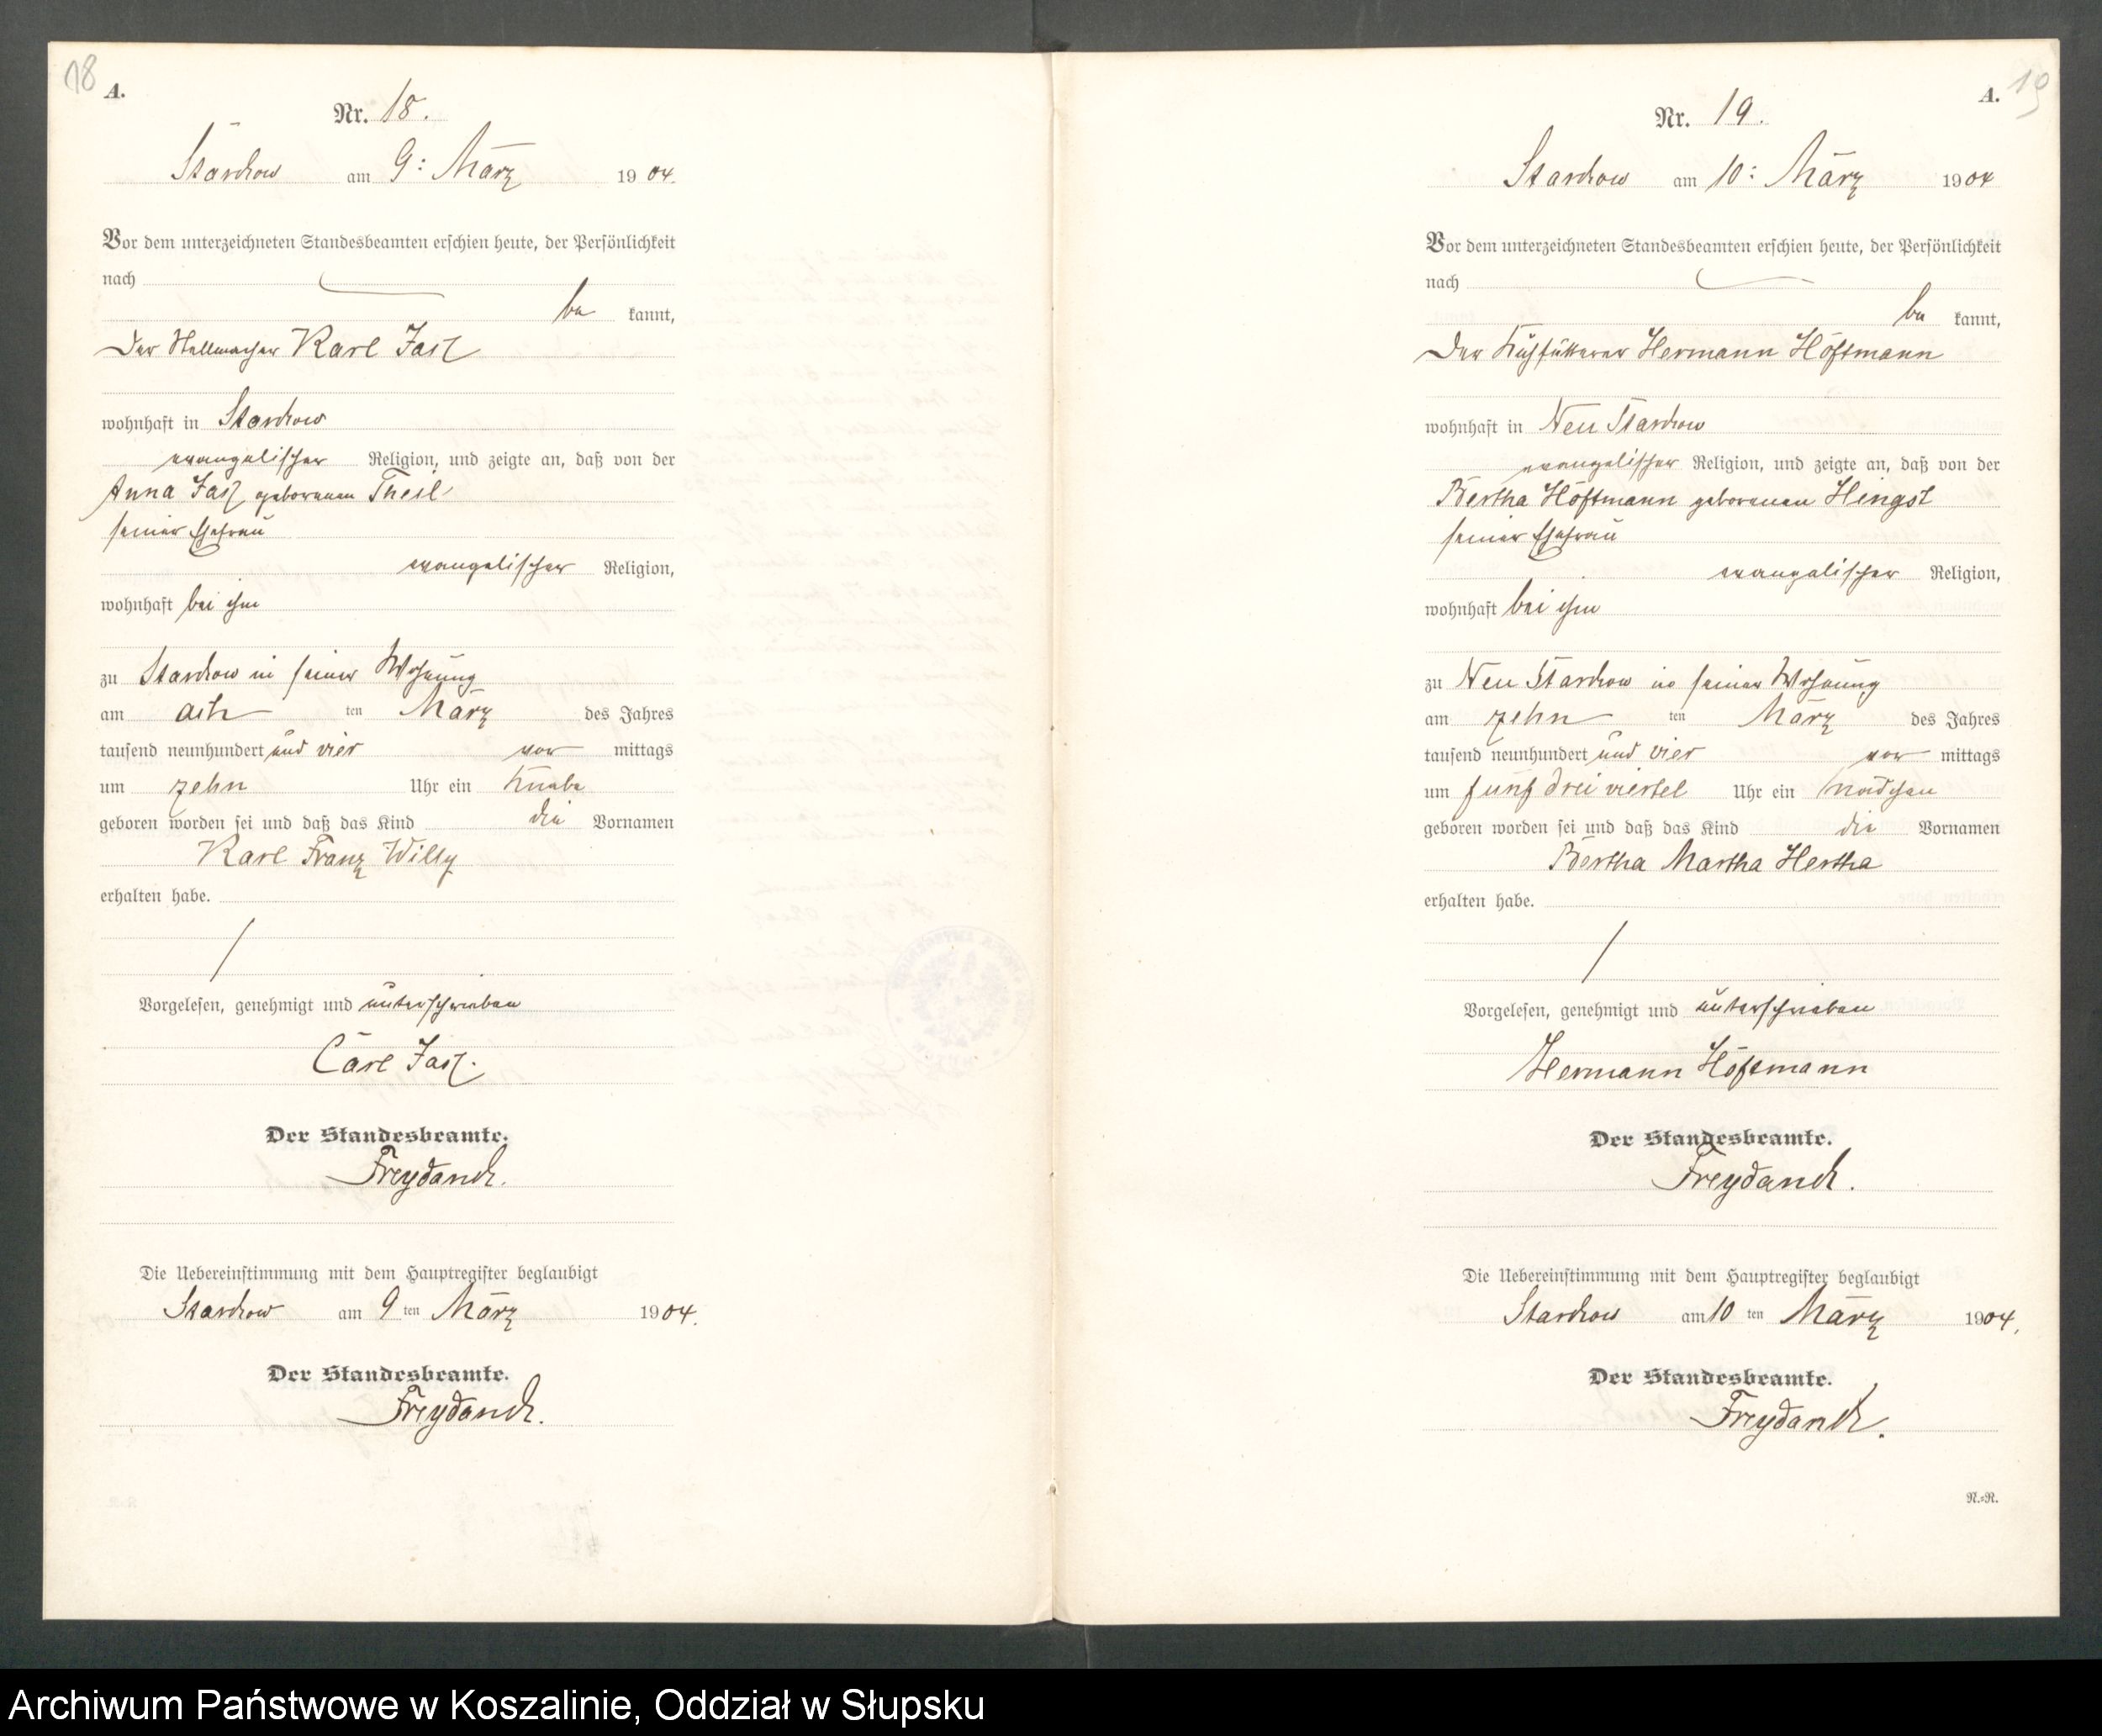 18
A.
Nr. 18.
Starckow am 9: März 1904.
Vor dem unterzeichneten Standesbeamten erschien heute, der Persönlichkeit
nach
be kannt,
Der Stellmacher Karl Jasz
wohnhaft in Starckow
evangelischer Religion, und zeigte an, daß von der
Anna Jasz geborenen Theil
seiner Ehefrau
evangelischer Religion,
wohnhaft bei ihm
zu Starckow in seiner Wohnung
am ach ten März des Jahres
tausend neunhundert und vier vor mittags
um zehn Uhr ein Knabe
geboren worden sei und daß das Kind die Vornamen
Karl Franz Willy
erhalten habe.
Vorgelesen, genehmigt und unterschrieben
Carl Jasz.
Der Standesbeamte.
Freydanck.
Die Uebereinstimmung mit dem Hauptregister beglaubigt
Starckow am 9 ten März 1904.
Der Standesbeamte.
Freydanck.
A.
19
Nr. 19.
Starckow am 10: März 1904
Vor dem unterzeichneten Standesbeamten erschien heute, der Persönlichkeit
nach
be kannt,
Der Kuhfütterer Hermann Höftmann
wohnhaft in Neu Starckow
evangelischer Religion, und zeigte an, daß von der
Bertha Höftmann geborenen Hingst
seiner Ehefrau
evangelischer Religion,
wohnhaft bei ihm
zu Neu Starckow in seiner Wohnung
am zehn ten März des Jahres
tausend neunhundert und vier vor mittags
um fünf drei viertel Uhr ein Mädchen
geboren worden sei und daß das Kind die Vornamen
Bertha Martha Hertha
erhalten habe.
Vorgelesen, genehmigt und unterschrieben
Hermann Höftmann
Der Standesbeamte.
Freydanck.
Die Uebereinstimmung mit dem Hauptregister beglaubigt
Starckow am 10 ten März 1904.
Der Standesbeamte.
Freydanck.
N.=R.
Archiwum Państwowe w Koszalinie, Oddział w Słupsku